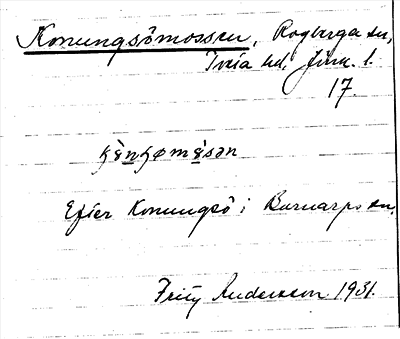 Konungsömossen, Rogberga sn,
Tveta hd, Jönk. l.
17.
Efter Konungsö i Barnarps sn.
Fritz Andersson 1931.